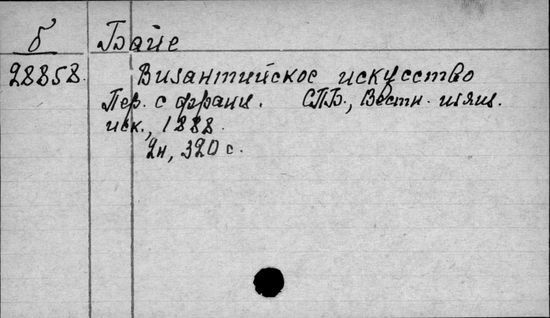 б Байе
28858. Византийское искусство
Пер. с франц. СПБ., Вестн. изящ.
иск., 1888.
2н, 320 с.